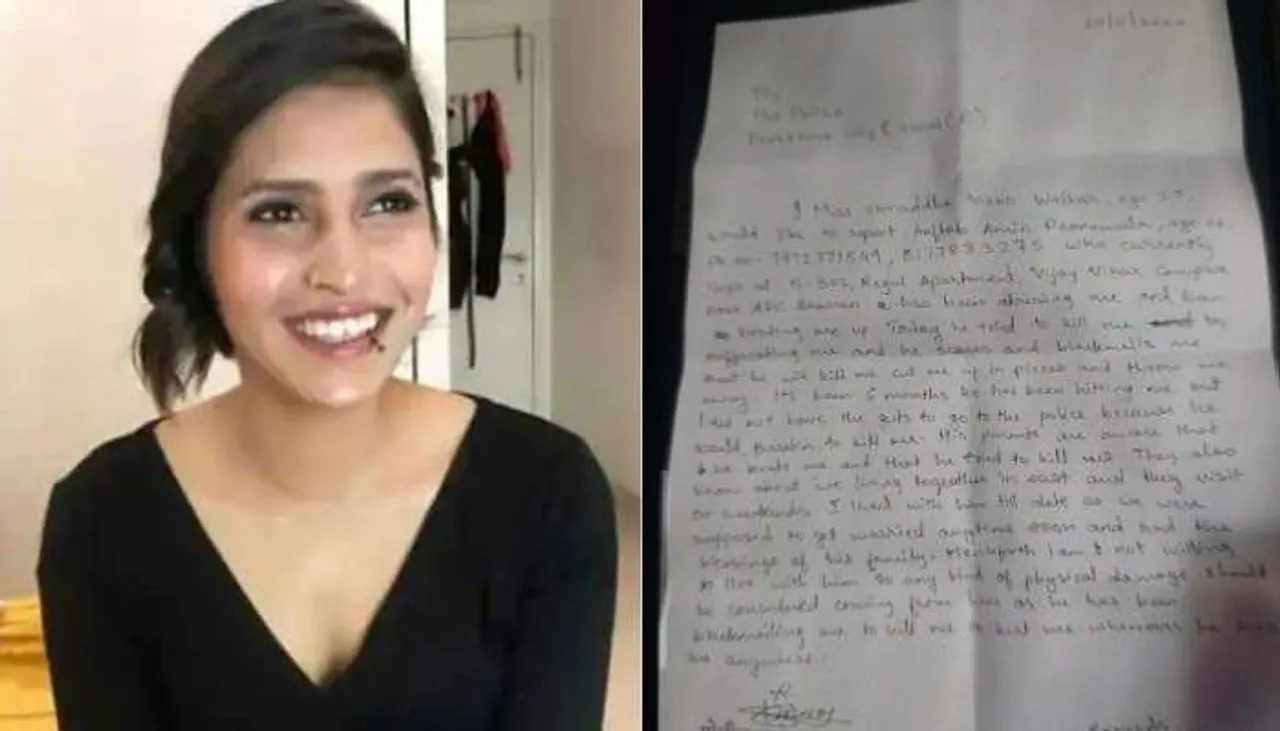 To,
The Police
I Miss Shraddha Walkar, age 25,
would like to report Aaftab Amin Poonawala, age
who currently
stays at Regal Apartment, Vijay Vihar Complex
has been abusing me and
beating me up. Today he tried to kill me by
suffocating me and he scares and blackmails me
that he will kill me, cut me up in pieces and throw me
away. Its been 6 months he has been hitting me but
I did not have the guts to go to the police because he
would threaten to kill me. His parents are aware that
he beats me and that he tried to kill me. They also
know about we living together and they visit
on weekends. I lived with him till date as we were
supposed to get married anytime soon and had the
blessings of his family. Henceforth I am not willing
to live with him so any kind of physical damage should
be considered coming from him as he has been
blackmailing me to kill me or hurt me whenever he sees
me anywhere.